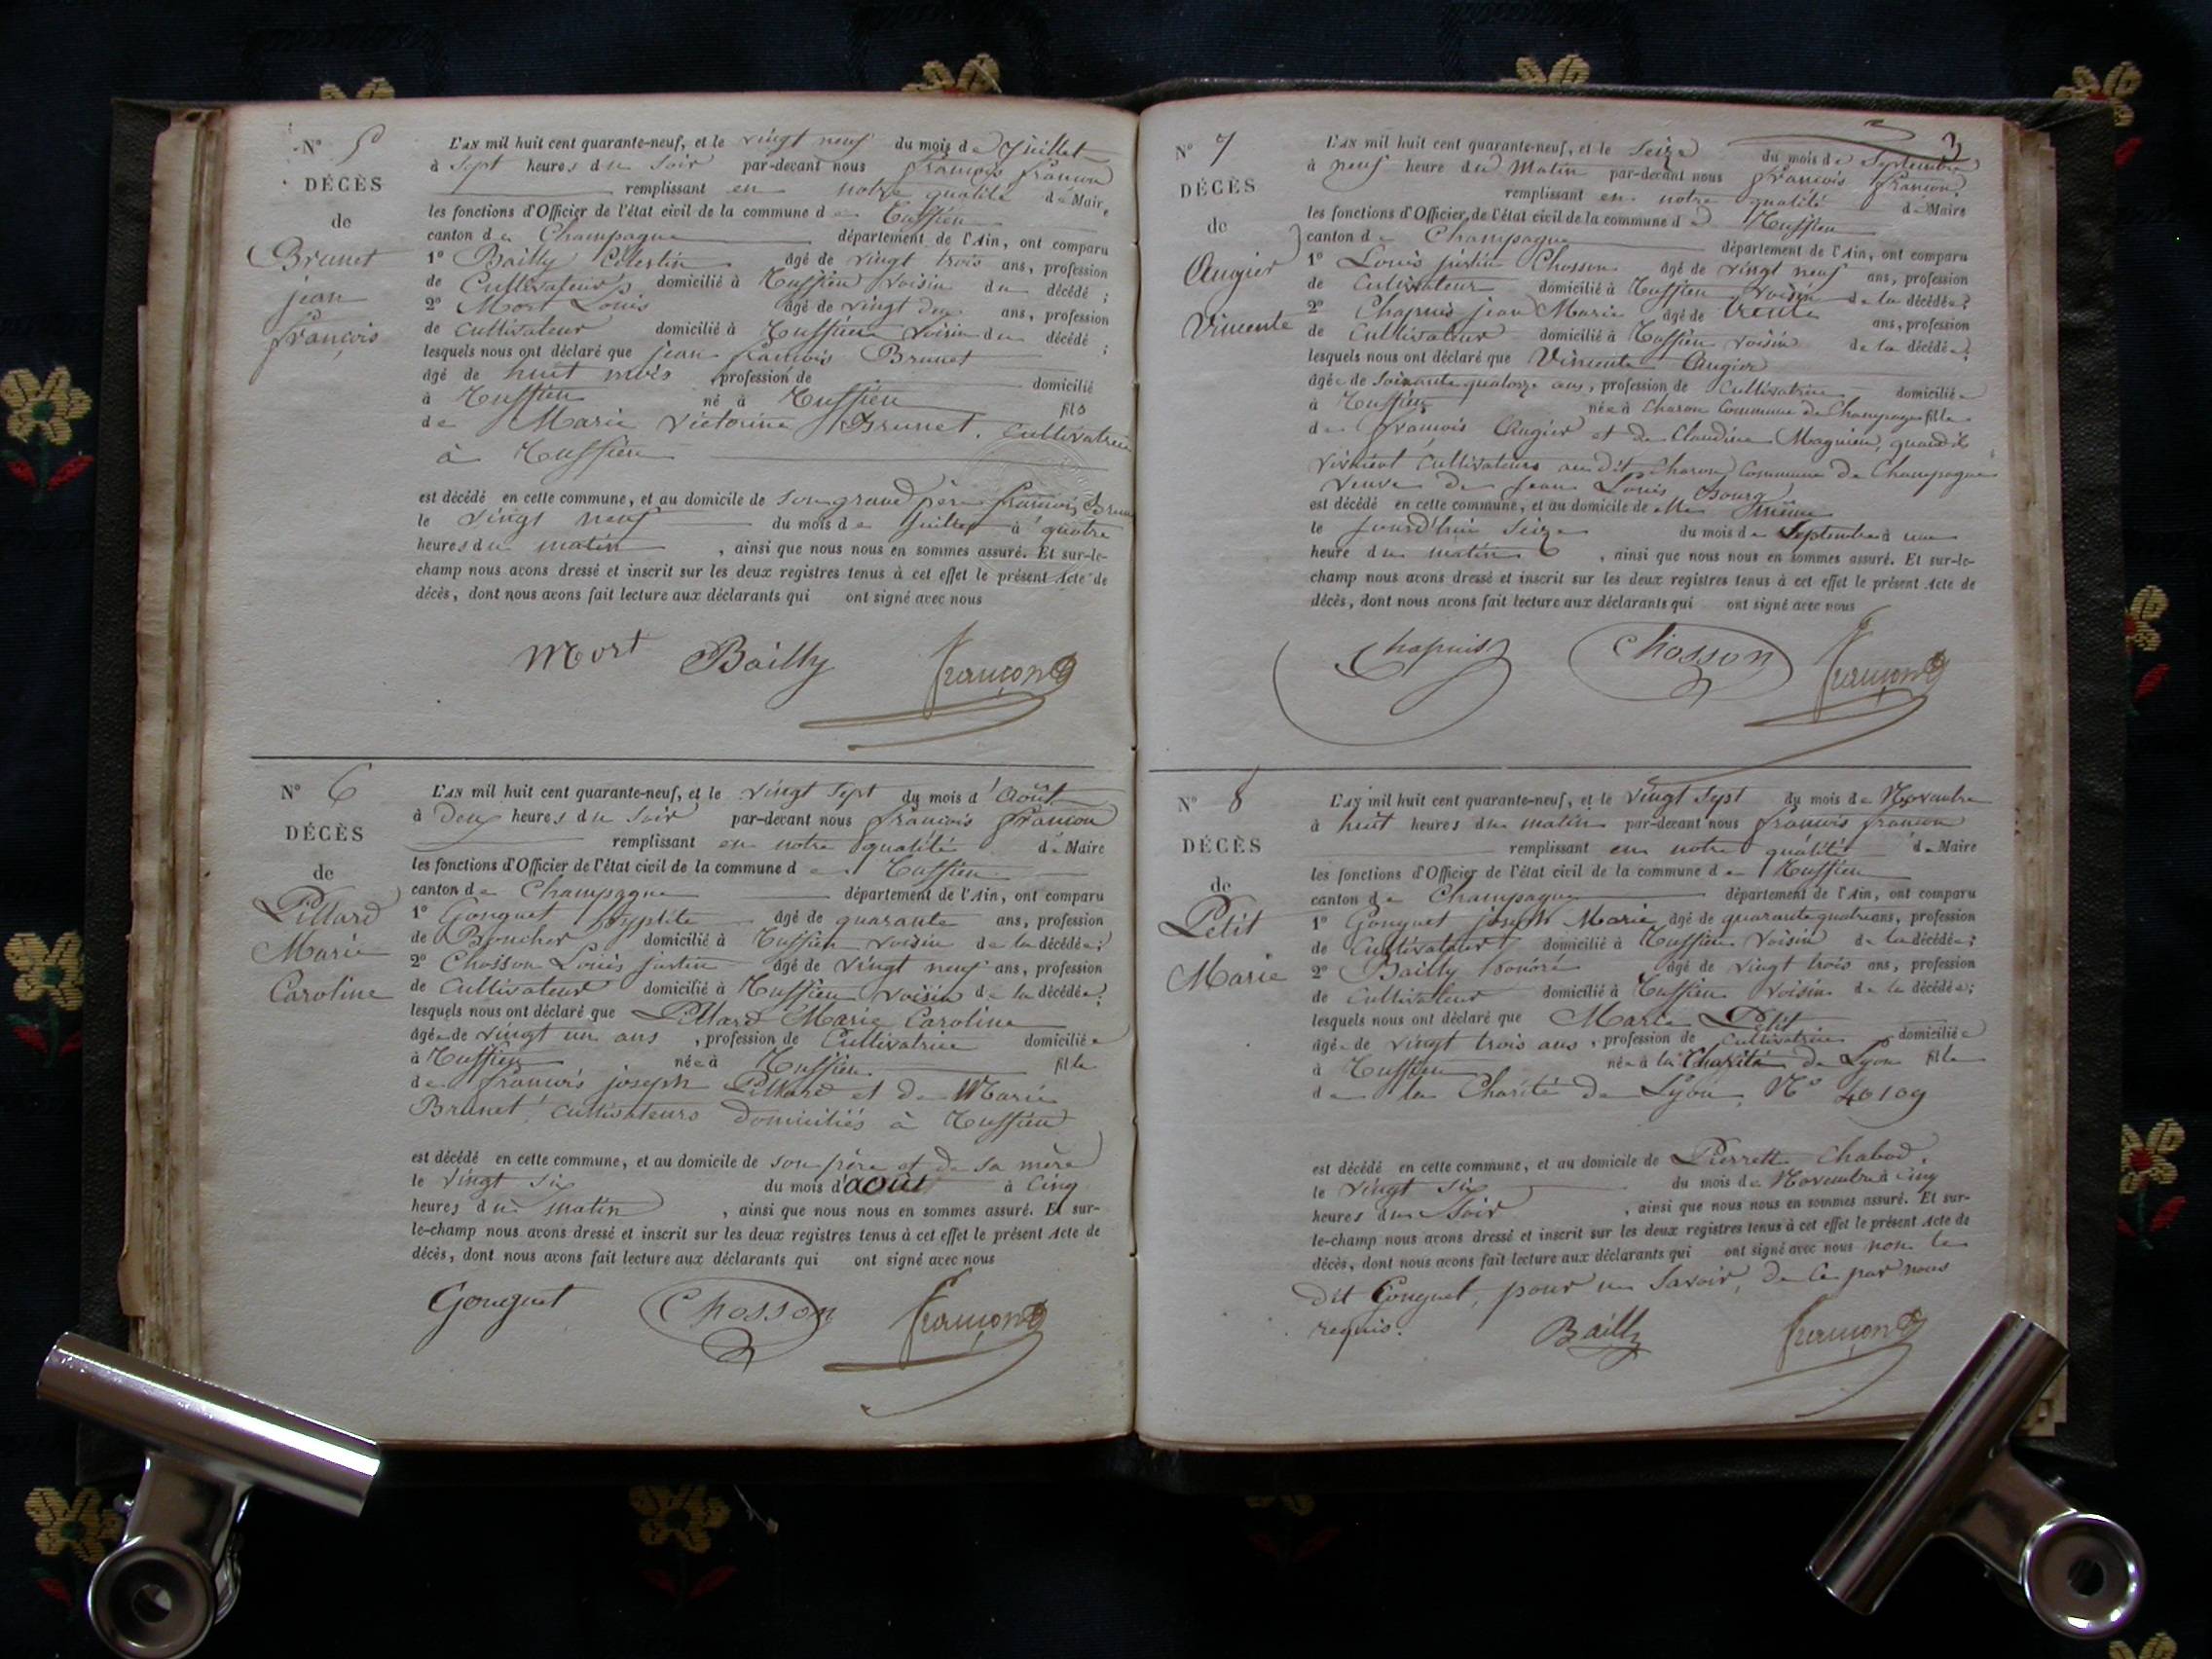 N° 5
DÉCÈS
de
Brunet
jean
françois
L'AN mil huit cent quarante-neuf, et le vingt neuf du mois de Juillet
à sept heures du soir par-devant nous françois françon
remplissant en notre qualité de Maire
les fonctions d'Officier de l'état civil de la commune de
canton de Champagne département de l'Ain, ont comparu
1° Bailly Célestin âgé de vingt trois ans, profession
de Cultivateur domicilié à voisin du décédé ;
2° Mort Louis âgé de vingt deux ans, profession
de cultivateur domicilié à voisin du décédé ;
lesquels nous ont déclaré que jean francois Brunet
âgé de huit mois profession de domicilié
à né à fils
de Marie Victorine Brunet, Cultivatrice
à
est décédé en cette commune, et au domicile de son grand père francois Brunet
le vingt neuf du mois de Juillet à quatre
heures du matin , ainsi que nous nous en sommes assuré. Et sur-le-
champ nous avons dressé et inscrit sur les deux registres tenus à cet effet le présent Acte de
décès, dont nous avons fait lecture aux déclarants qui ont signé avec nous
Mort Bailly françon
N° 6
DÉCÈS
de
Pillard
Marie
Caroline
L'AN mil huit cent quarante-neuf, et le vingt sept du mois d'Août
à deux heures du soir par-devant nous francois françon
remplissant en notre qualité de Maire
les fonctions d'Officier de l'état civil de la commune de
canton de Champagne département de l'Ain, ont comparu
1° Gouguet hypolite âgé de quarante ans, profession
de Boucher domicilié à voisin de la décédée ;
2° Chosson Louis justin âgé de vingt neuf ans, profession
de Cultivateur domicilié à voisin de la décédée ;
lesquels nous ont déclaré que Pillard Marie Caroline
âgée de vingt un ans , profession de Cultivatrice domiciliée
à née à fille
de francois joseph Pillard et de Marie
Brunet cultivateurs domiciliés à
est décédé en cette commune, et au domicile de son père et de sa mère
le vingt six du mois d'août à cinq
heures du matin , ainsi que nous nous en sommes assuré. Et sur-
le-champ nous avons dressé et inscrit sur les deux registres tenus à cet effet le présent Acte de
décès, dont nous avons fait lecture aux déclarants qui ont signé avec nous
Gouguet Chosson françon
3
N° 7
DÉCÈS
de
Augier
Vincente
L'AN mil huit cent quarante-neuf, et le Seize du mois de Septembre
à neuf heure du Matin par-devant nous francois françon
remplissant en notre qualité de Maire
les fonctions d'Officier de l'état civil de la commune de
canton de Champagne département de l'Ain, ont comparu
1° Louis justin Chosson âgé de vingt neuf ans, profession
de Cultivateur domicilié à voisin de la décédée ;
2° Chapuis jean Marie âgé de trente ans, profession
de Cultivateur domicilié à voisin de la décédée ;
lesquels nous ont déclaré que Vincente Augier
âgée de soixante quatorze ans, profession de Cultivatrice domiciliée
à née à Charon Commune de Champagne fille
de francois Augier et de Claudine Magnin, quand ils
vivaient cultivateurs au dit Charon Commune de Champagne
veuve de Jean Louis
est décédé en cette commune, et au domicile de elle même
le jourd'hui Seize du mois de Septembre à une
heure du matin , ainsi que nous nous en sommes assuré. Et sur-le-
champ nous avons dressé et inscrit sur les deux registres tenus à cet effet le présent Acte de
décès, dont nous avons fait lecture aux déclarants qui ont signé avec nous
Chapuis Chosson françon
N° 8
DÉCÈS
de
Petit
Marie
L'AN mil huit cent quarante-neuf, et le vingt sept du mois de Novembre
à huit heures du matin par-devant nous francois françon
remplissant en notre qualité de Maire
les fonctions d'Officier de l'état civil de la commune de
canton de Champagne département de l'Ain, ont comparu
1° Gouguet joseph Marie âgé de quarante quatre ans, profession
de Cultivateur domicilié à voisin de la décédée ;
2° Bailly honoré âgé de vingt trois ans, profession
de Cultivateur domicilié à voisin de la décédée ;
lesquels nous ont déclaré que Marie Petit
âgée de vingt trois ans , profession de Cultivatrice domiciliée
à née à la Charité de Lyon fille
de la Charité de Lyon, N° 40109
est décédé en cette commune, et au domicile de Pierrette Chabod.
le vingt six du mois de Novembre à cinq
heures du Soir , ainsi que nous nous en sommes assuré. Et sur-
le-champ nous avons dressé et inscrit sur les deux registres tenus à cet effet le présent Acte de
décès, dont nous avons fait lecture aux déclarants qui ont signé avec nous non le
dit Gouguet, pour ne savoir, de ce par nous
requis.
Bailly françon